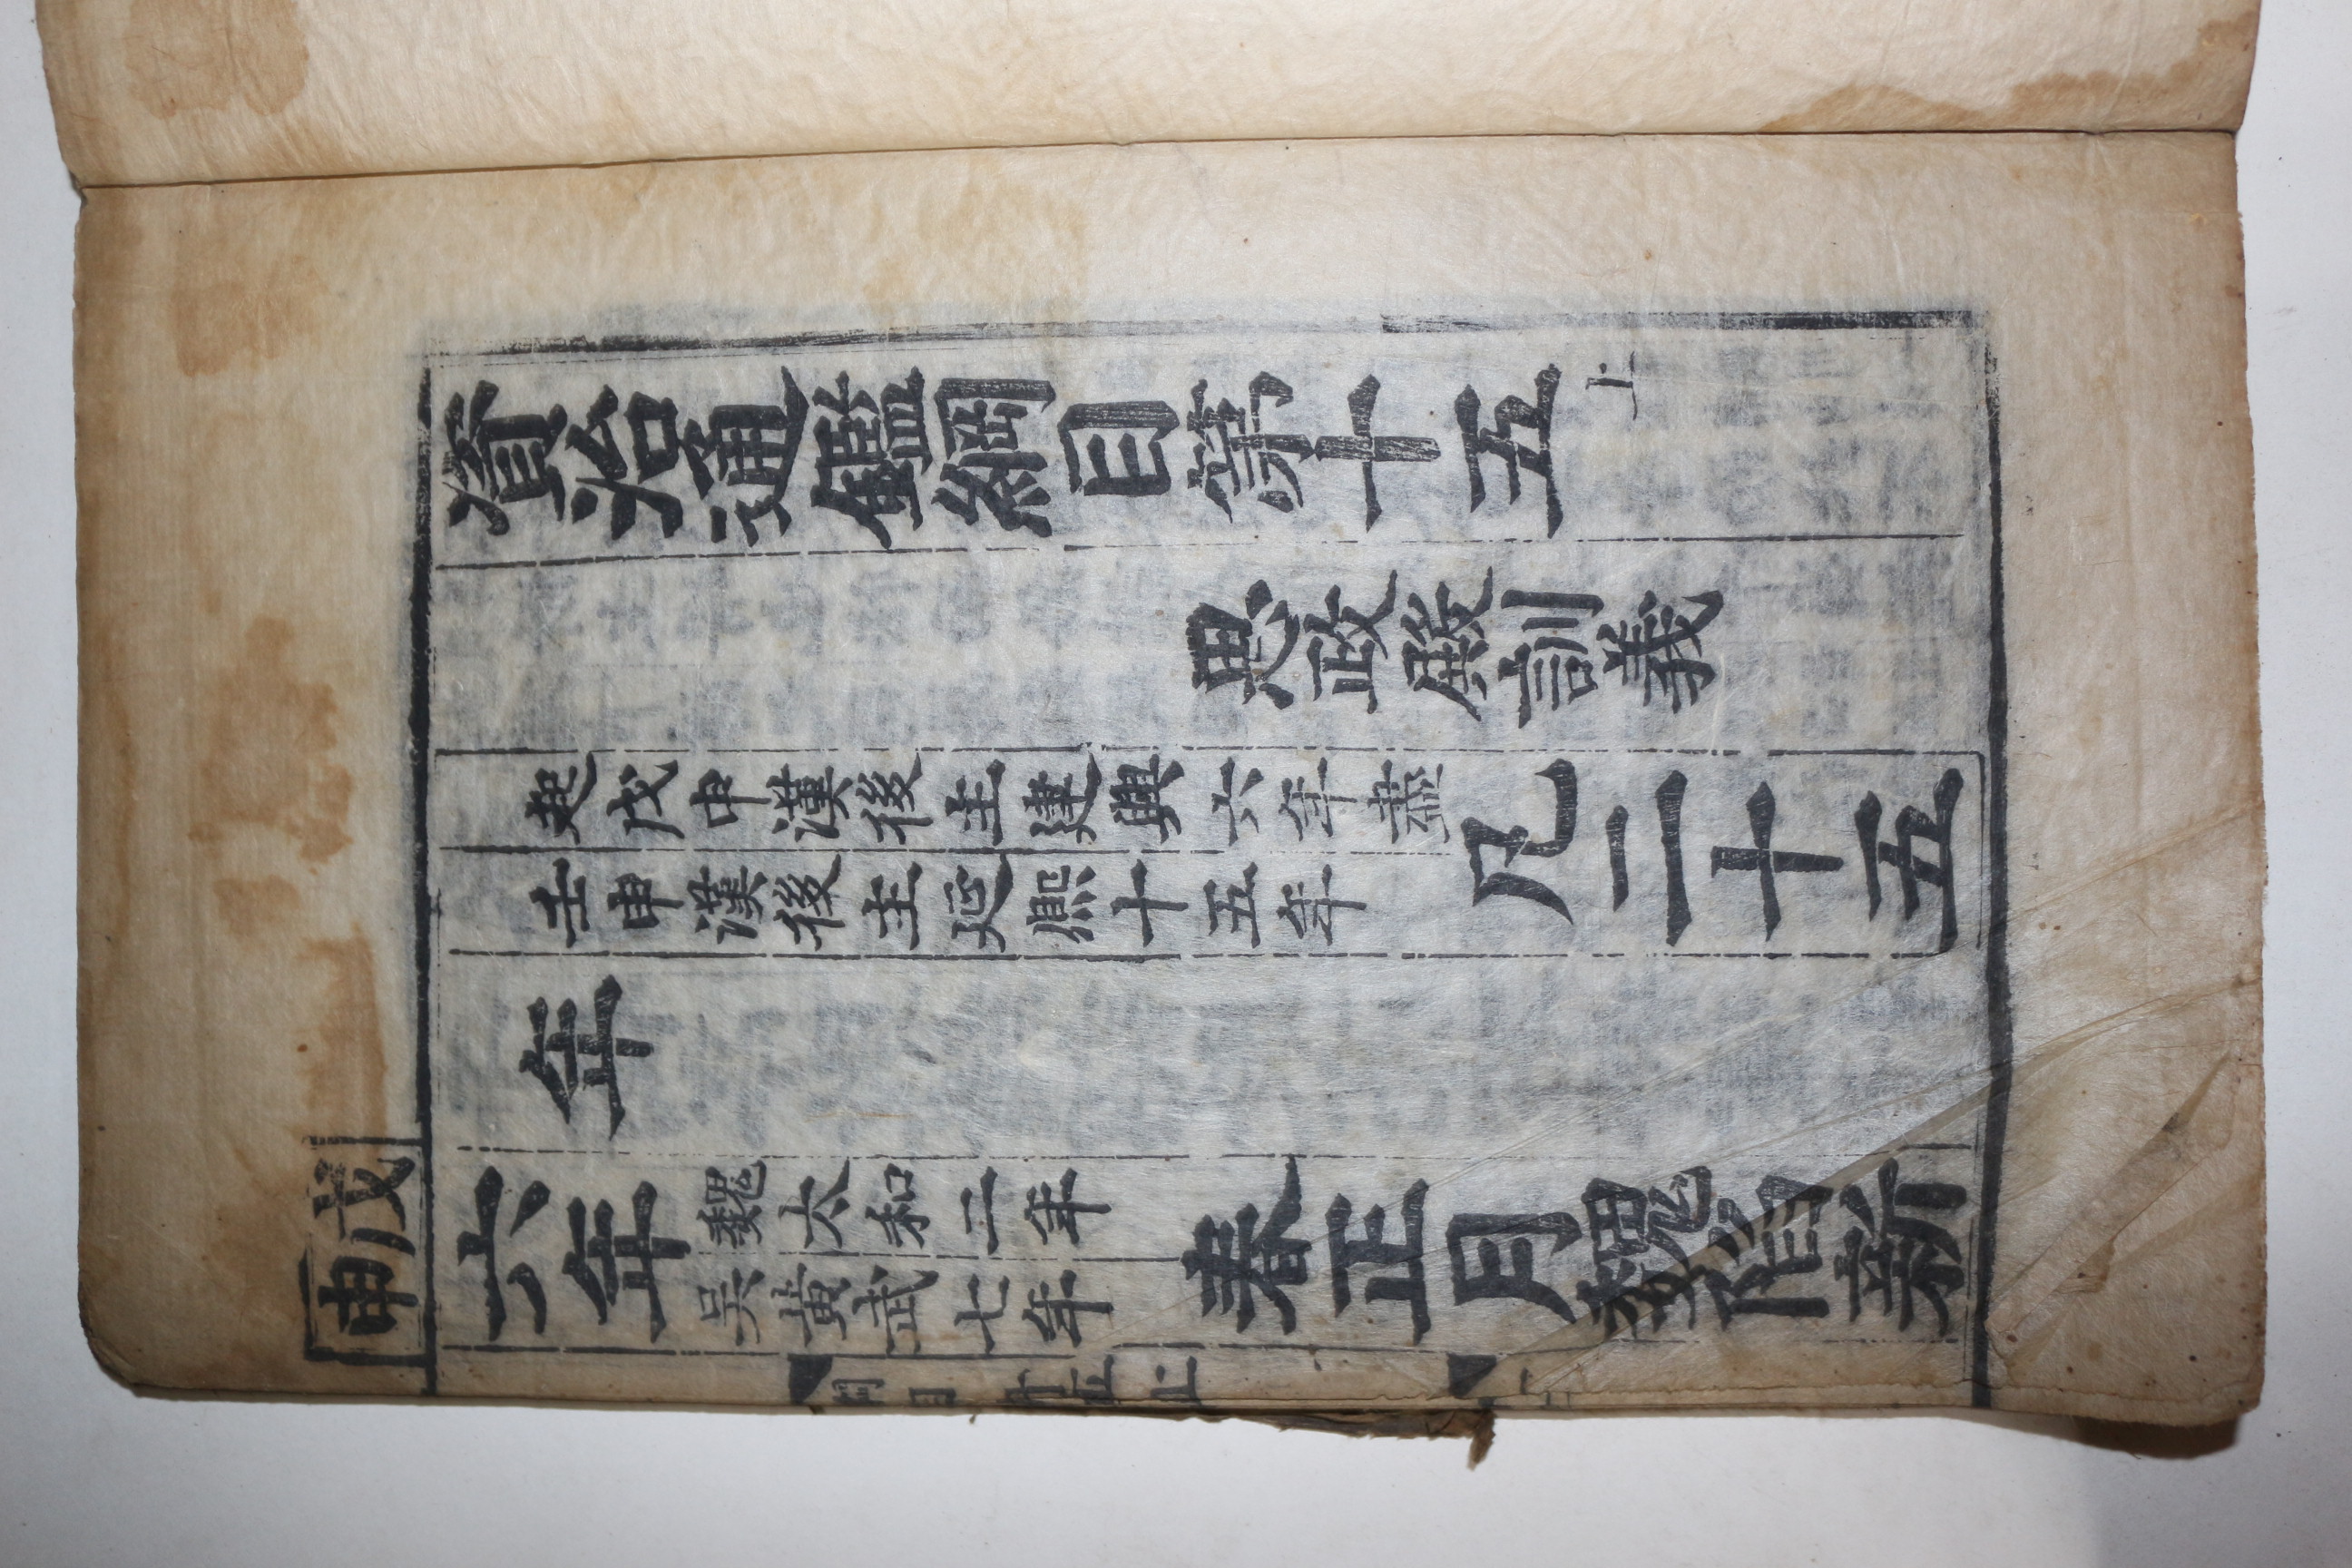 資治通鑑綱目第十五上
思政殿訓義
起戊申漢後主建興六年盡
壬申漢後主延熙十五年
凡二十五
年
戊申
六年
魏太和二年
吳黃武七年
春正月魏陷新
綱目十五上